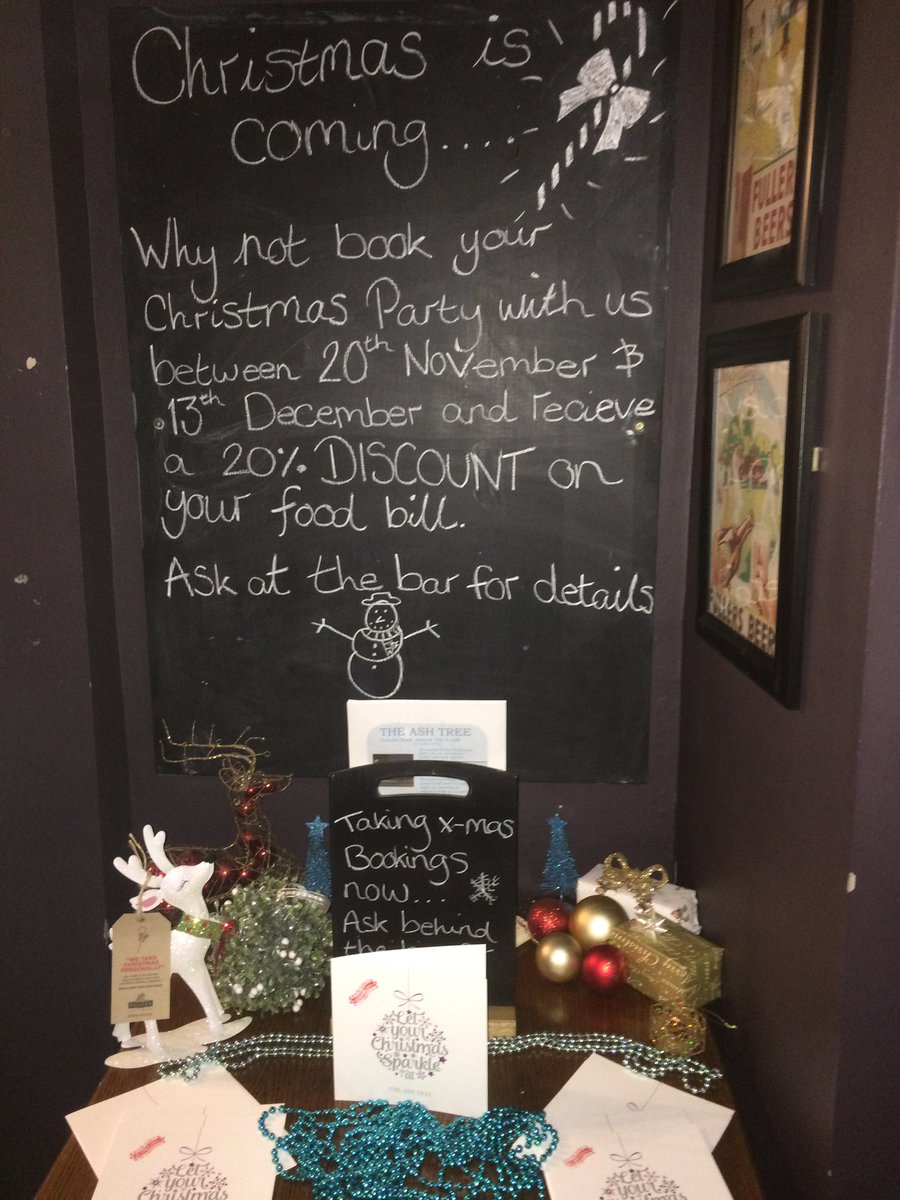 Christmas is
coming....
Why not book your
Christmas Party with us
between 20th November &
13th December and recieve
a 20% DISCOUNT on
your food bill.
Ask at the bar for details
FULLER
BEERS
BEER
THE ASH TREE
Taking x-mas
Bookings
now...
Ask behind
the
"WE TAKE
CHRISTMAS
PERSONALLY"
Let
your
Christmas
Sparkle
THE ASH TREE
Let
your
Christmas
Let
your
Christmas